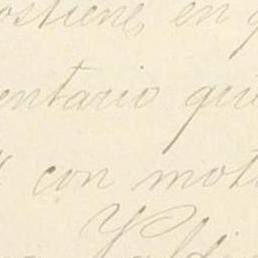 ostiene en q
entario que
con mot